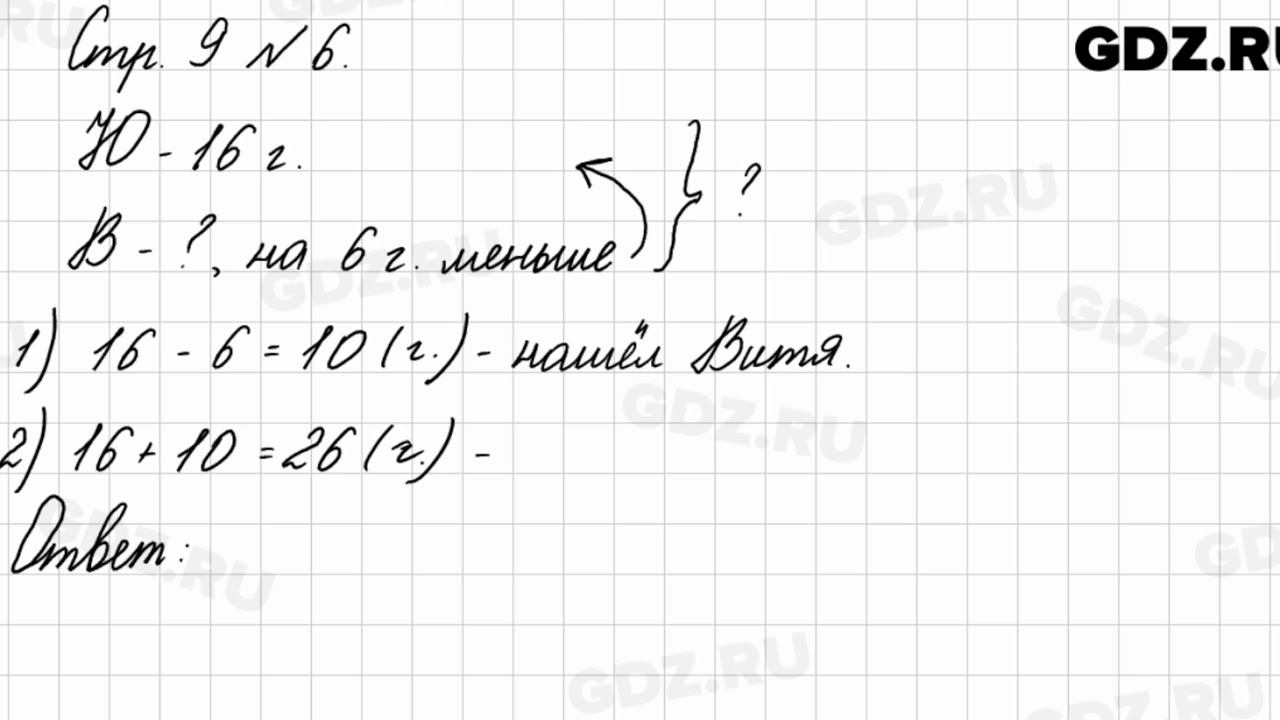 Стр. 9 № 6.
GDZ.RU
Ю - 16 г.
В - ?, на 6 г. меньше } ?
1) 16 - 6 = 10 (г.) - нашёл Витя.
2) 16 + 10 = 26 (г.) -
Ответ:
GDZ.RU
GDZ.RU
GDZ.RU
GDZ.RU
GDZ.RU
GDZ.RU
GDZ.RU
GDZ.RU